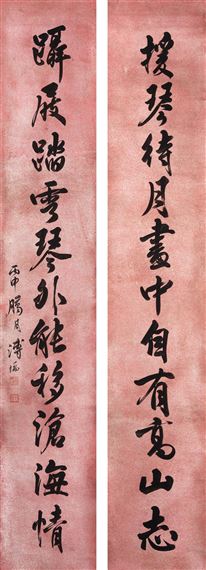 援琴待月畫中自有高山志
蹑屐踏雲琴外能移滄海情
丙申腊月溥